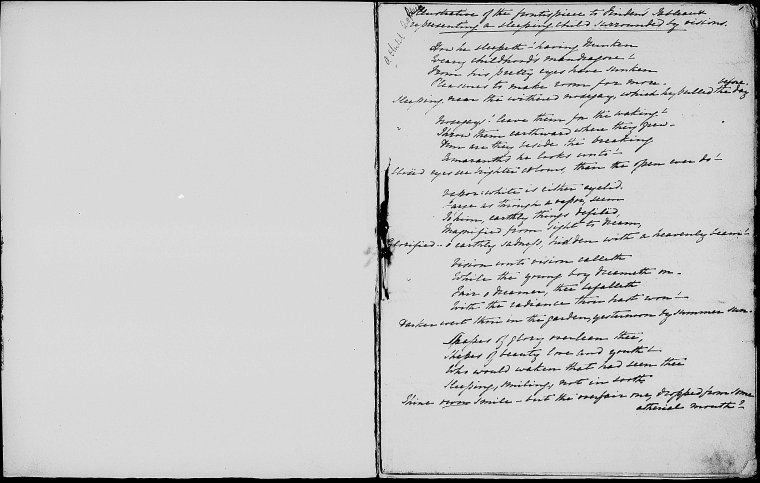 Illustrative of the frontispiece to Finden's Tableaux
representing a sleeping child surrounded by visions.
How he sleepeth! having drunken
Weary childhood's mandragore!
From his pretty eyes have sunken
Pleasures to make room for more.
Sleeping near the withered nosegay, which he pulled the day before.
Nosegays! leave them for the waking!
Throw them earthward where they grew.
Dim are they beside the breaking
Amaranths he looks unto!
Closed eyes see brighter colours, than the open ever do!
Vapor-white is either eyelid,
as through a vapor, seem
To him, earthly things defiled,
Magnified from sight to dream,
Glorified - o earthly sadness, hidden with a heavenly beam!
Vision unto vision calleth
While the young boy dreameth on.
Fair o dreamer, thee befalleth
With the radiance thou hast won!
Darker wert thou in the garden, yesternoon by summer sun.
Shapes of glory overlean thee,
Shapes of beauty love and youth!
Who would waken that had seen thee
Sleeping, smiling, not in sooth
Thine own smile - but the overfair one, dropped from some
etherial mouth?